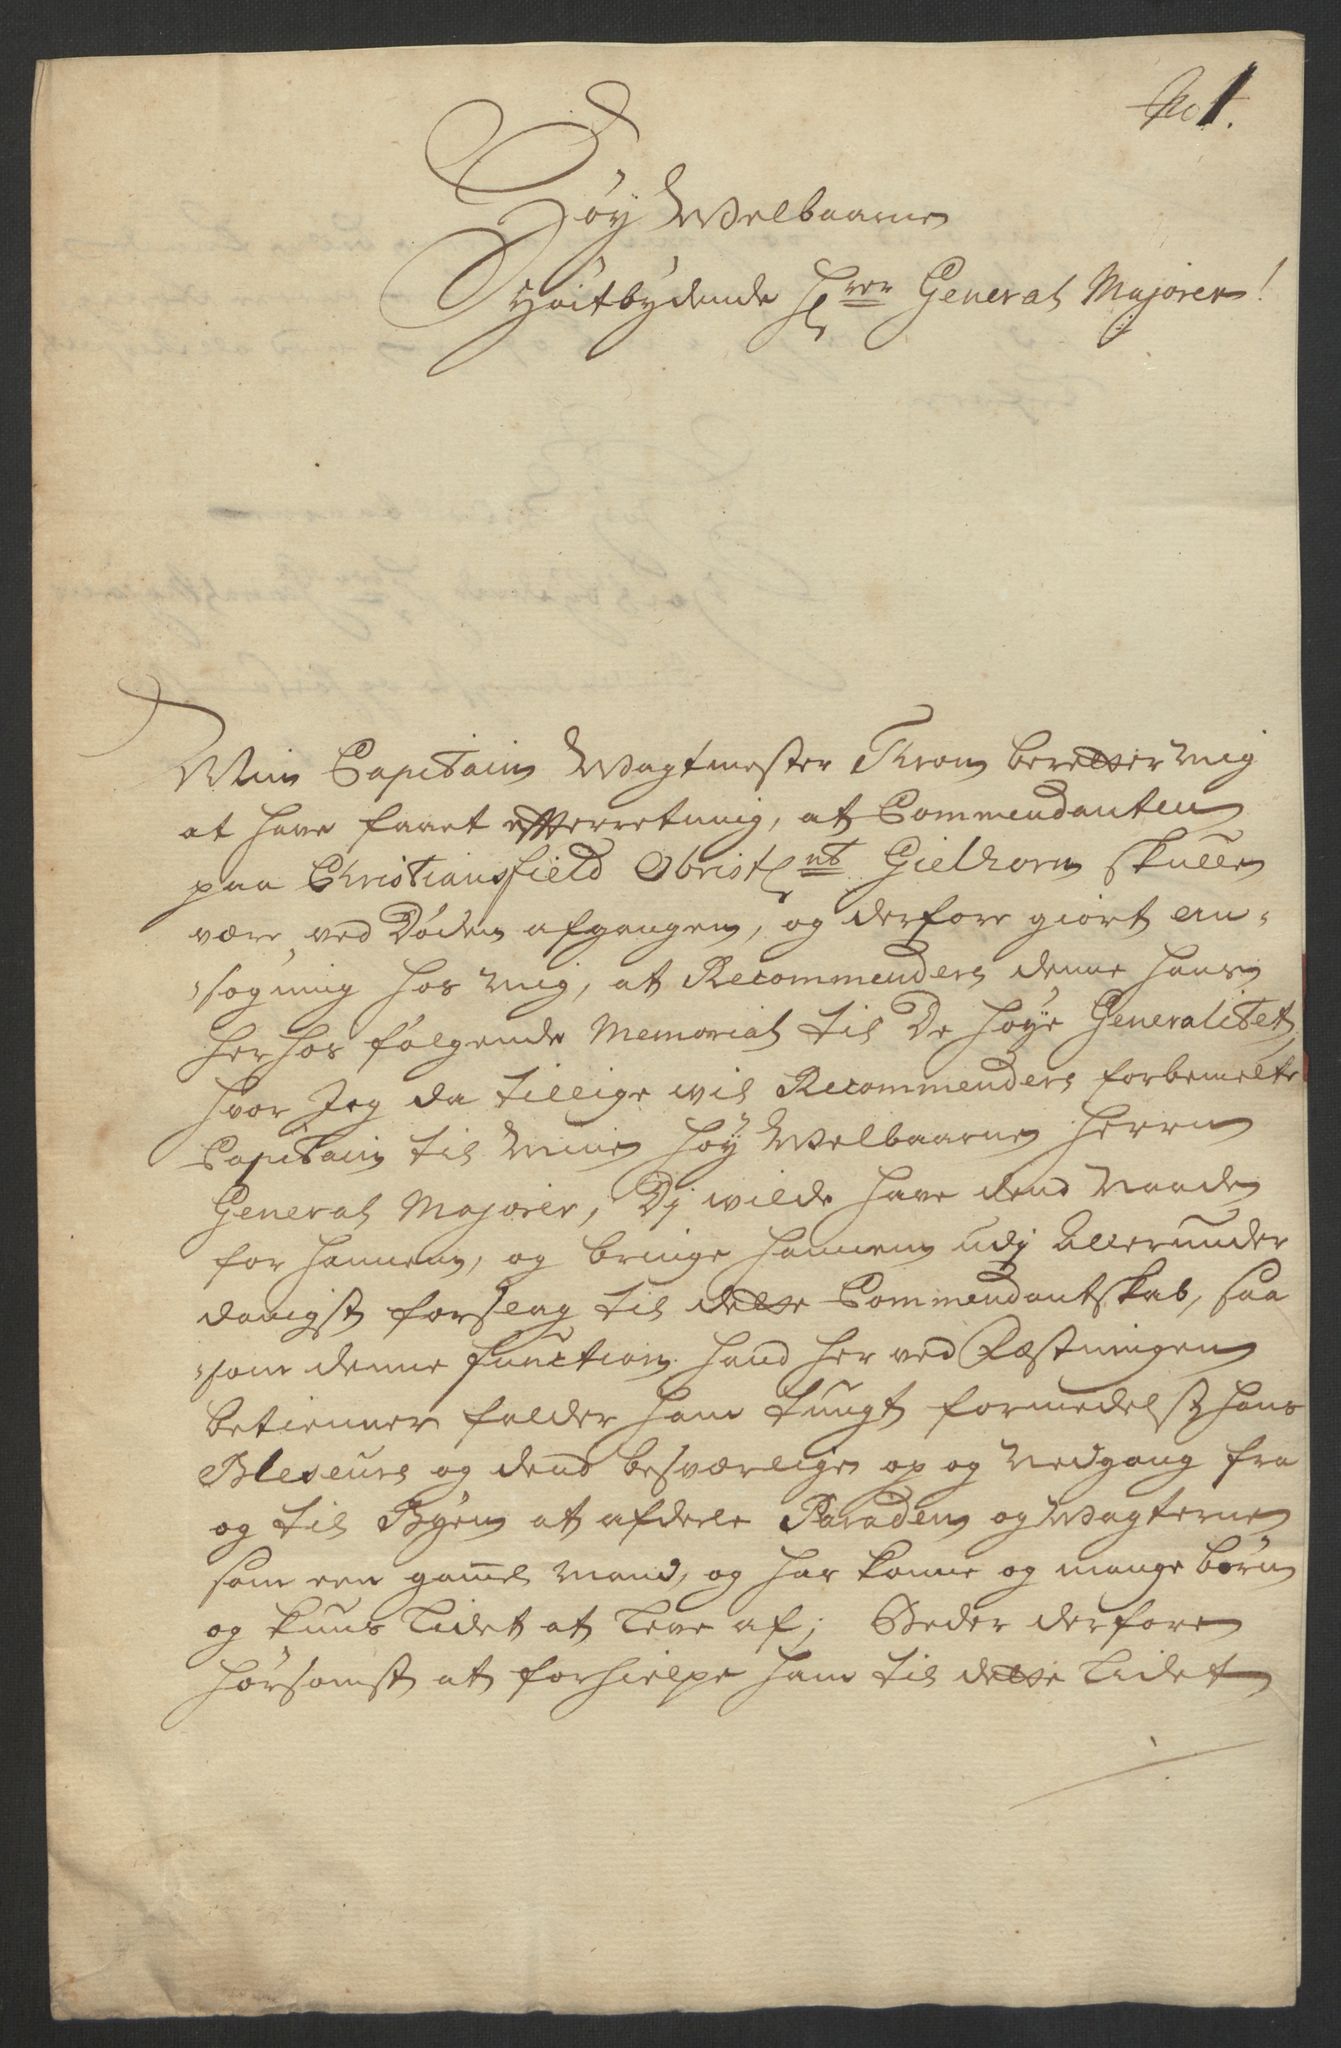 No 1.
Høy Welbaarne
Høitbydende Hrer General Major!
Min Capitain Wagtmester Kron beretter mig
at have faaet efterretning, at Commendanten
paa Christiansfield Obristl:nt Gielhorn skulle
være ved Døden afgangen, og derfore giort an-
søgning hos mig, at Recommendere denne hans
herhos følgende Memorial til De høye Generalitet,
hvor Jeg da tillige wil Recommendere forbemelte
Capitain til Min Høy Welbaarne Herrn
General Major, Dj wilde have dend Naade
for hannem, og bringe hannem udj Allerunder
danigst forslag til dette Commendantskab, saa
som denne function hand her ved Fæstningen
betienner falder ham tungt formedelst hans
Blesure og dend besværlige op og Nedgang fra
og til Byen at afdele Paraden og Wagterne
som een gam̅el mand, og har kone og mange børn
og kuns lidet at leve af; Beder derfore
hørsomst at forhielpe ham til dette lidet